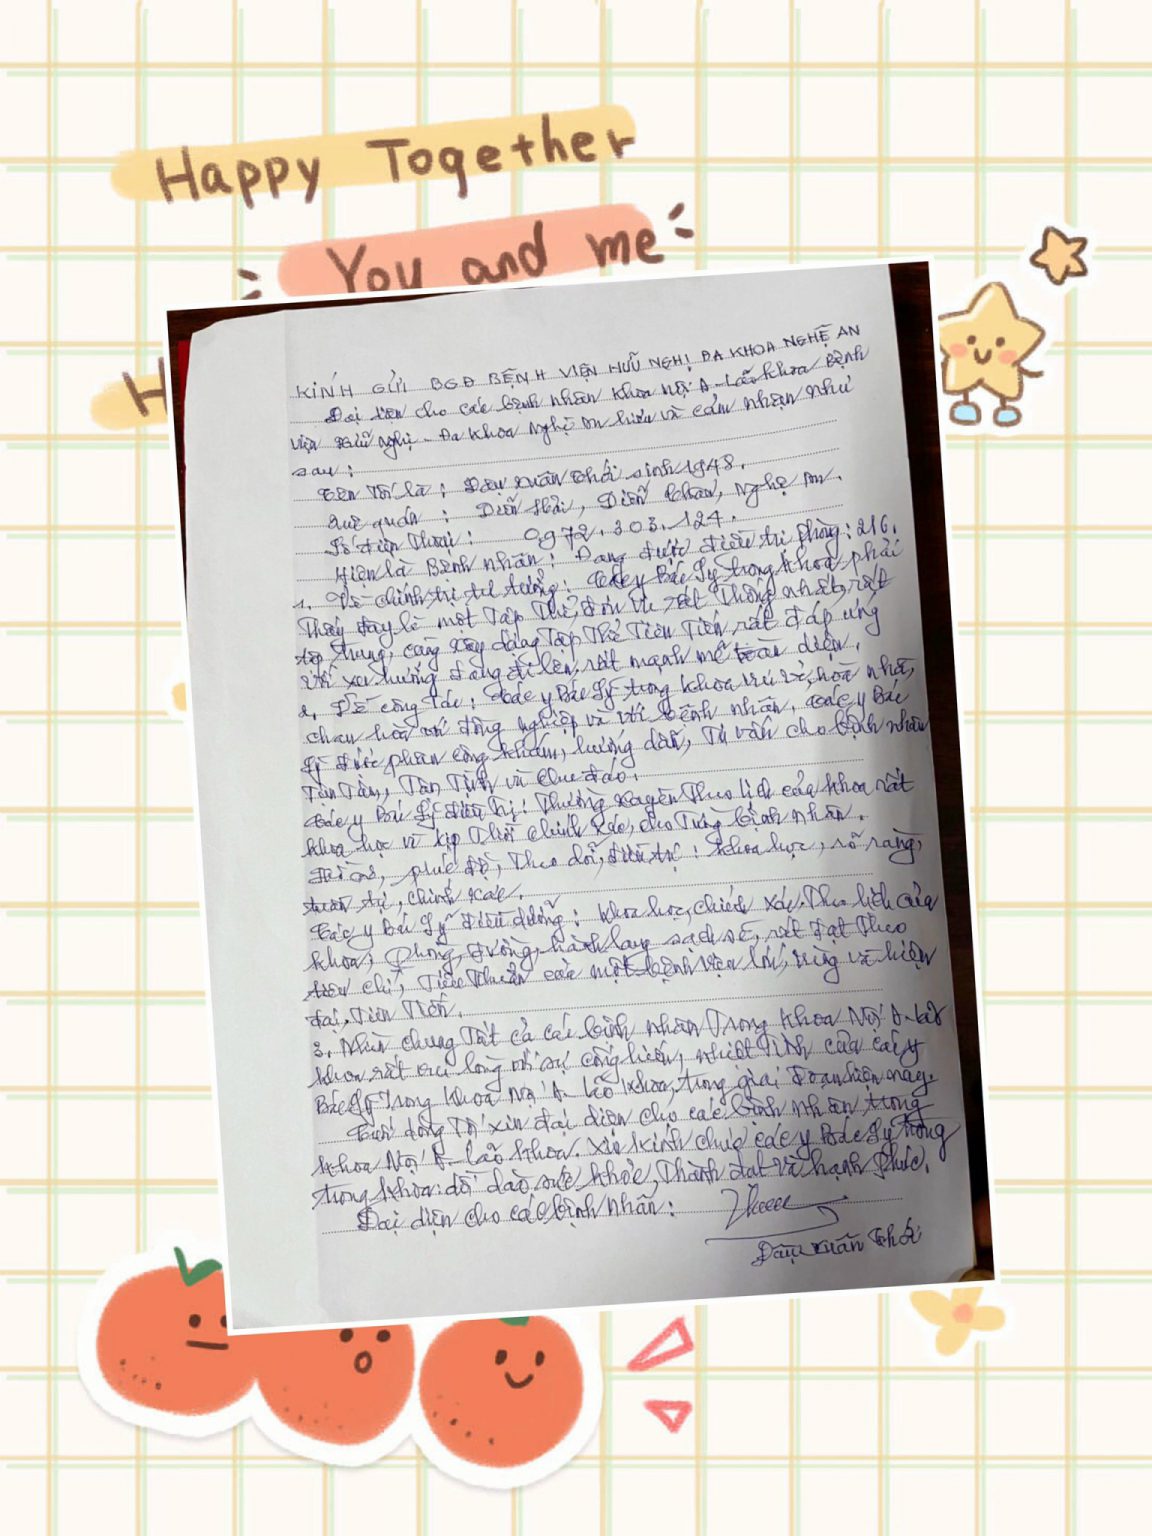 Happy Together
You and me
H
KÍNH GỬI BGĐ BỆNH VIỆN HỮU NGHỊ ĐA KHOA NGHỆ AN
Đại diện cho các bệnh nhân khoa nội A-Lão khoa Bệnh
viện Hữu nghị - Đa khoa Nghệ An hiểu và cảm nhận như
sau:
Tên tôi là: Đậu Xuân Thới sinh 1948.
Quê quán: Diễn Hải, Diễn Châu, Nghệ An.
Số điện thoại: 0972.303.124.
Hiện là Bệnh nhân: Đang được điều trị phòng: 216.
1. Về chính trị tư tưởng: Các y Bác Sỹ trong khoa phải
thấy đây là một Tập Thể, đơn vị rất thống nhất, rất
tập trung, cùng xây dựng Tập Thể Tiên Tiến rất đáp ứng
với xu hướng đang đi lên, rất mạnh mẽ toàn diện.
2. Về công tác: Các y Bác Sỹ trong khoa vui vẻ, hoà nhã,
chan hoà với đồng nghiệp và với bệnh nhân. Các y Bác
Sỹ được phân công khám, hướng dẫn, Tư vấn cho bệnh nhân
Tận Tâm, Tận Tình và Chu đáo.
Các y Bác Sỹ điều trị: Thường xuyên Theo lịch của khoa rất
khoa học và kịp thời chính xác, cho Từng bệnh nhân.
phác đồ, Theo dõi, điều trị: khoa học, rõ ràng,
chính xác.
Các y Bác Sỹ điều dưỡng: khoa học, chính xác. Theo lịch của
khoa, phòng, đường, hành lang sạch sẽ, rất đạt Theo
tiêu chí, Tiêu Thuẩn của một bệnh viện lớn, và hiện
đại, Tiên Tiến.
3. Nhìn chung Tất cả các bệnh nhân Trong khoa Nội A-Lão
khoa rất vui lòng với sự cống hiến, nhiệt Tình của các y
Bác Sỹ Trong khoa Nội A-Lão khoa, trong giai đoạn hiện nay.
Cuối cùng Tôi xin đại diện cho các bệnh nhân trong
khoa Nội A-Lão khoa. Xin kính chúc các y Bác Sỹ trong
trong khoa: dồi dào sức khỏe, Thành đạt và hạnh phúc.
Đại diện cho các bệnh nhân:
Đậu Xuân Thới